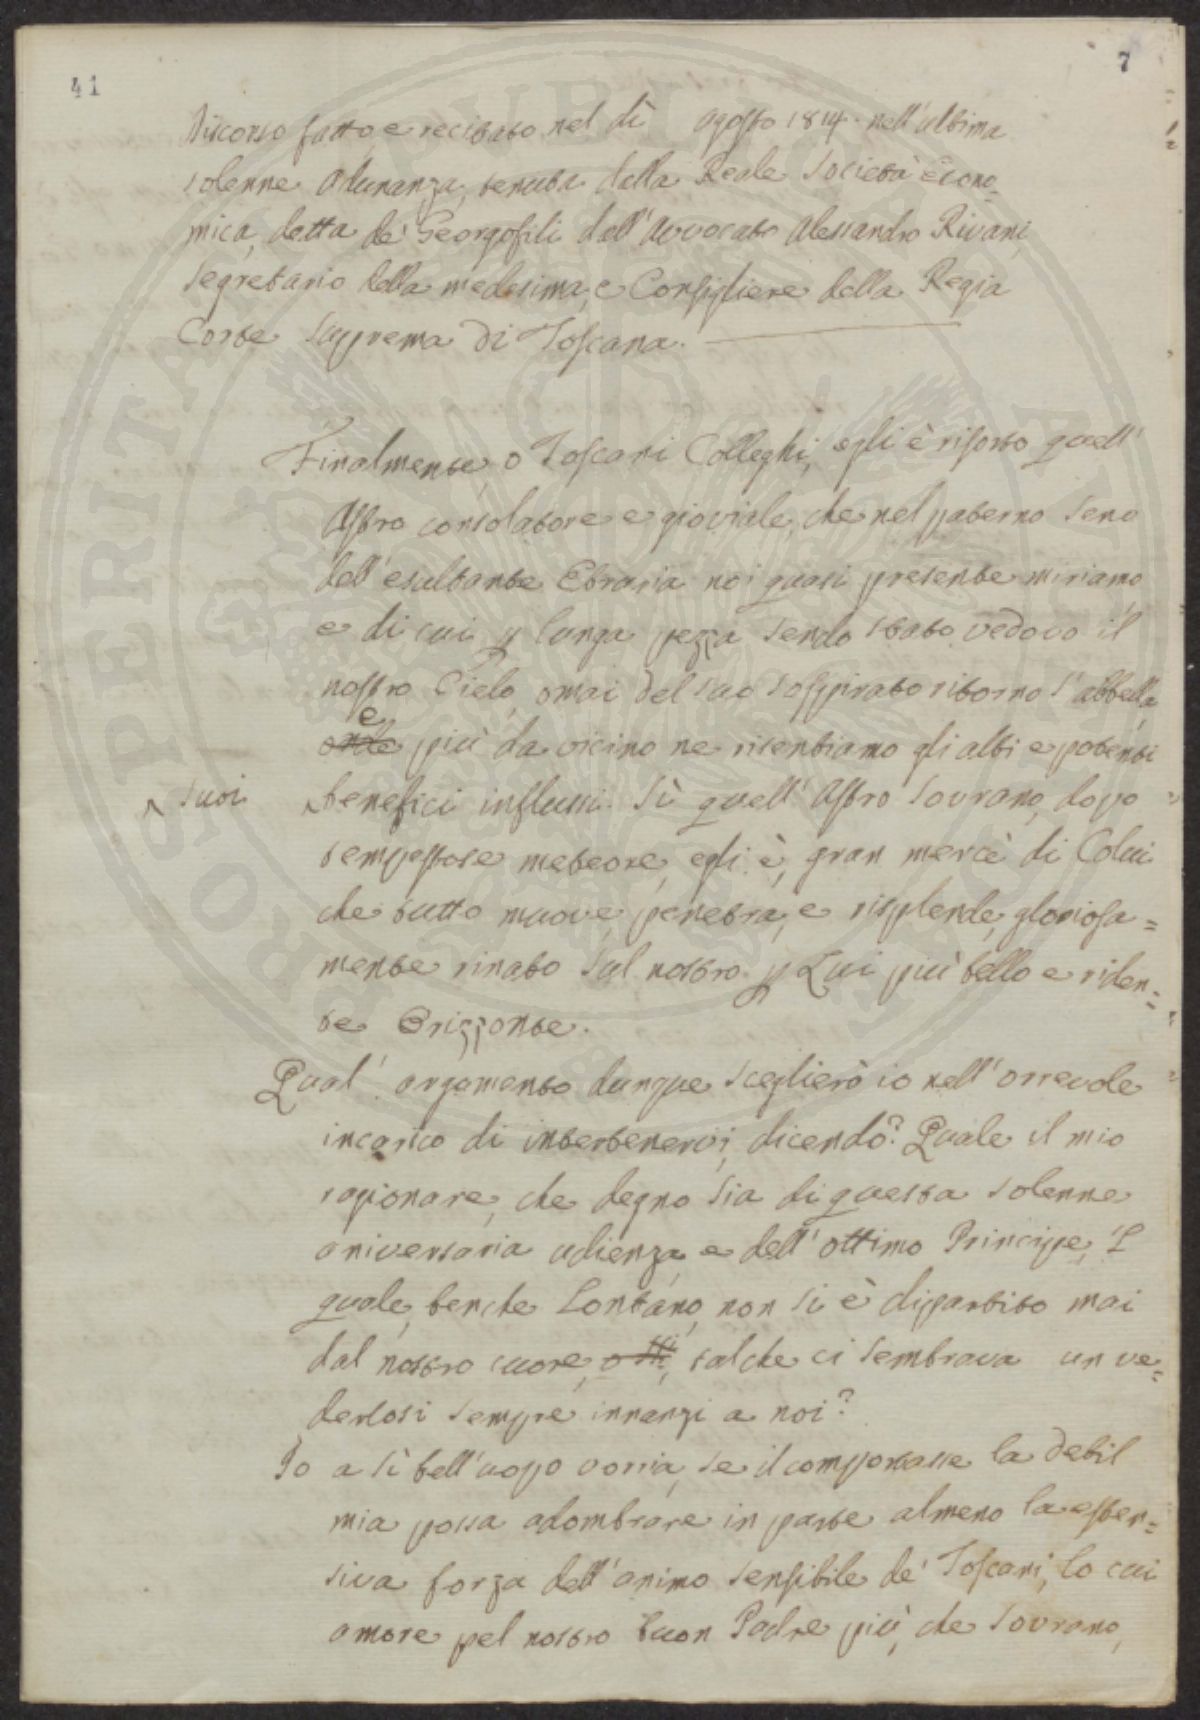 41
7
Discorso fatto, e recitato nel dì agosto 1814. nell'ultima
solenne adunanza, tenuta dalla Reale Società Econo-
mica, detta de' Georgofili dall'Avvocato Alessandro Rivani,
Segretario della medesima, e Consigliere della Regia
Corte Suprema di Toscana.
Finalmente, o Toscani Colleghi, egli è risorto quell'
Astro consolatore e gioviale, che nel paterno seno
dell'esultante Etraria noi quasi presente miriamo
e di cui p lunga pezza sendo stato vedovo il
nostro Cielo, omai del suo sospirato ritorno s'abbella,
e
onde più da vicino ne risentiamo gli alti e potenti
^ suoi
^benefici influssi. Sì quell'Astro Sovrano, dopo
tempestose meteore, egli è, gran mercè di Colui
che tutto muove, penetra, e risplende, gloriosa=
mente rinato sul nostro p Lui più bello e riden=
te Orizzonte.
Qual' argomento dunque sceglierò io nell'orrevole
incarico di intertenervi, dicendo? Quale il mio
ragionare, che degno sia di questa solenne
aniversaria udienza e dell'ottimo Principe, 'l
quale, benche lontano, non si è dipartito mai
dal nostro cuore, talche ci sembrava un ve=
derlosi sempre innanzi a noi?
Io a sì bell'uopo vorria, se il comportasse la debil
mia possa adombrare in parte almeno la esten=
siva forza dell'animo sensibile de' Toscani, lo cui
amore pel nostro buon Padre più, che Sovrano,
PROSPERITATI PVBLICAE AVGENDAE